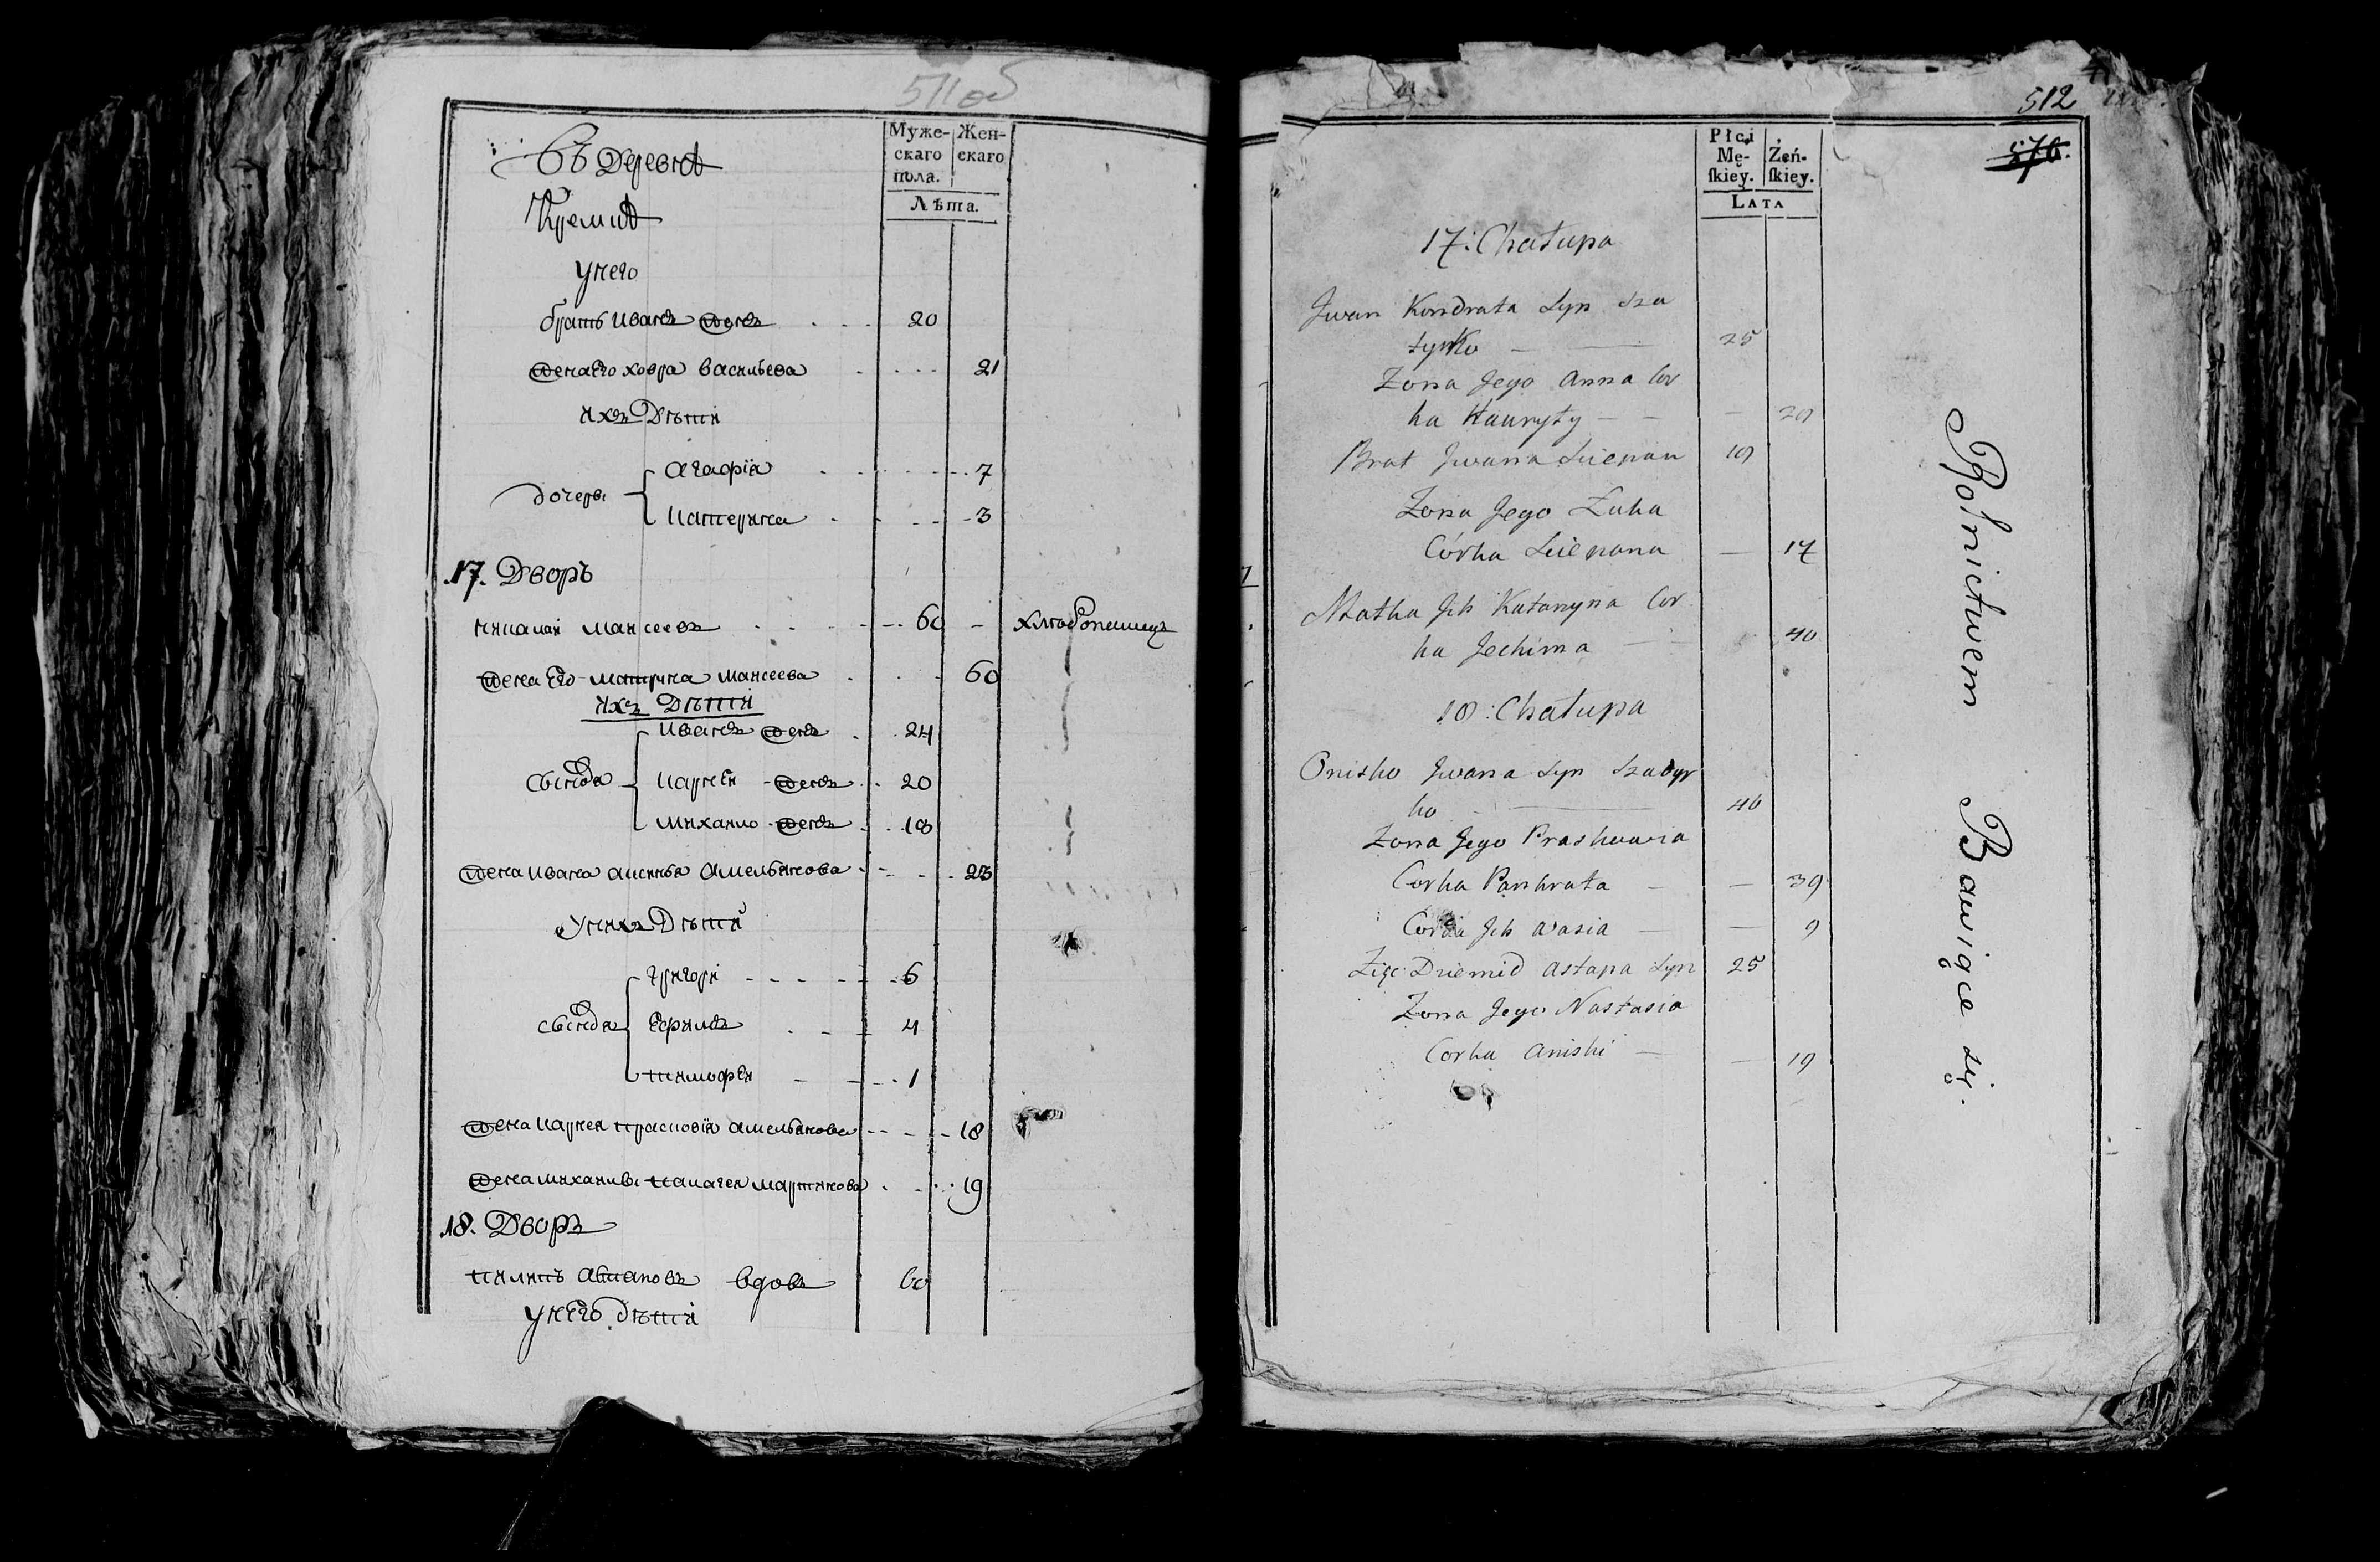 511 об
Въ деревнѣ
Муже-
скаго
пола.
Жен-
скаго
Лѣта.
Кремнѣ
У него
братъ иванъ женъ 20
жена его ховра васильева 21
ихъ дѣти
дочери
агафія 7
катерина 3
17. Дворъ
николаи маисеевъ 60 – хлѣбопашецъ
жена его матрина маисеева 60
ихъ дѣти
сыновя
иванъ женъ 24
карнѣи женъ 20
михаило женъ 18
жена ивана аксинья амельянова 23
у нихъ дѣти
сыновя
григори 6
ефимъ 4
тимофѣи 1
жена карнея прасковія амельянова 18
жена михаилы палагея мартинова 19
18. Дворъ
пилипъ астаповъ вдовъ 60
у него дѣти
512
576.
Płci
Mę-
ſkiey.
Żeń-
ſkiey.
LATA
17: Chałupa
Jwan Kondrata Syn Sza
dyrko — 25
Zona Jego Anna Cor
ka Hauryły — — 20
Brat Jwana Sciepan 19
Zona Jego Zuka
Córka Sciepana — 17
Matka Jch Katarzyna Cor
ka Jechima — 40
18: Chałupa
Onisko Jwana Syn Szadyr
ko — 40
Zona Jego Praskowia
Corka Pankrata — — 39
Corka Jch Wasia — — 9
Zięć Dziemid Astapa Syn 25
Zona Jego Nastasia
Corka Aniski — — 19
Rolnictwem Bawiące się.